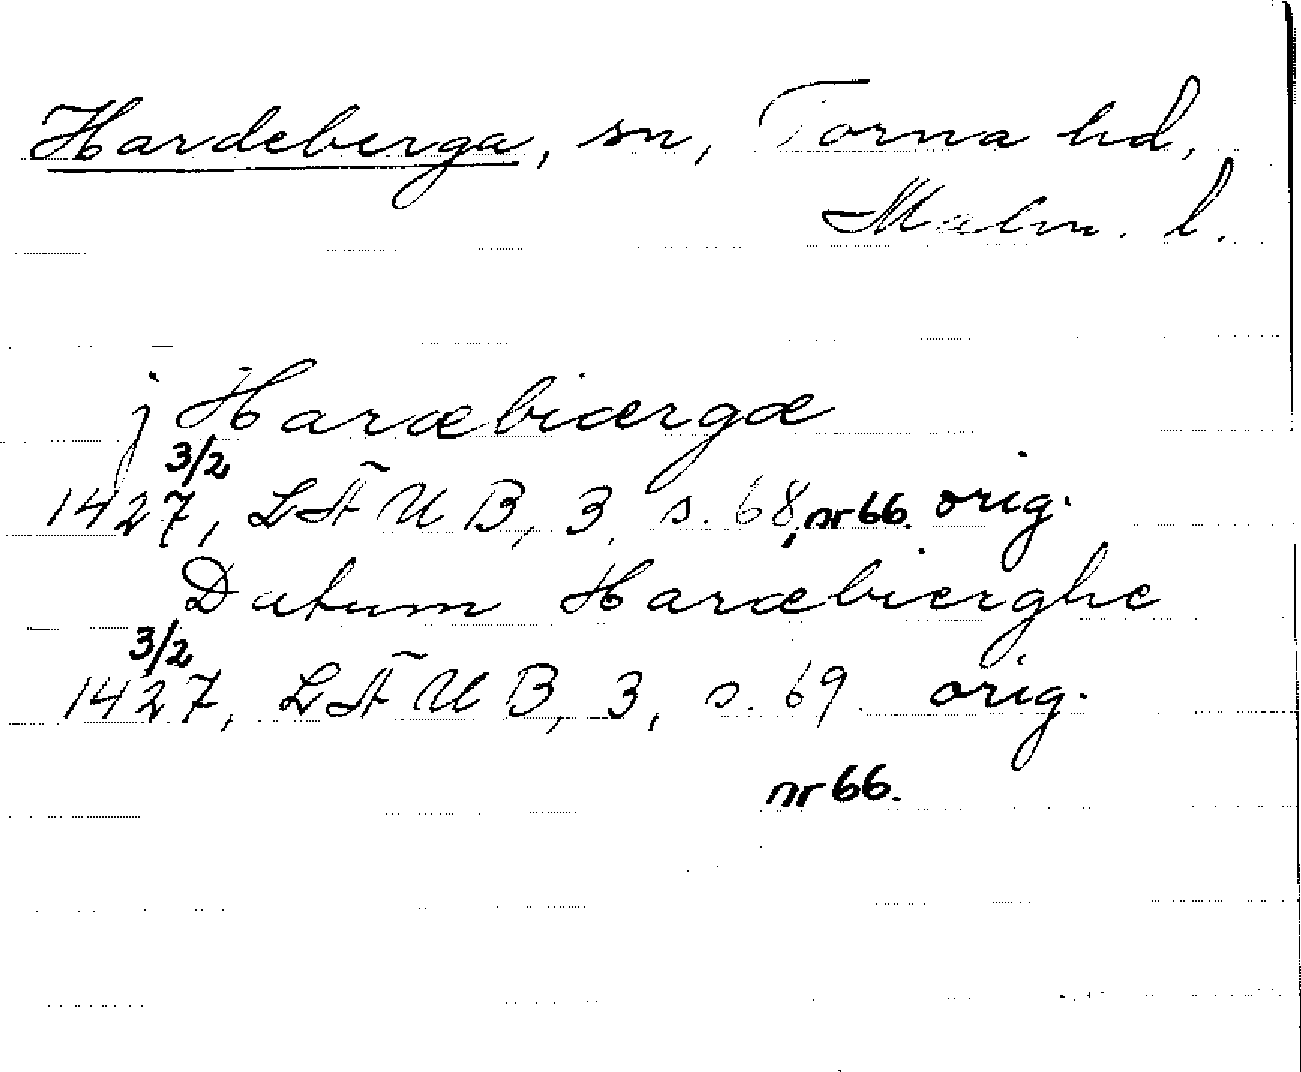 Hardeberga, sn, Torna hd,
Malm. l.
j Haræbiærgæ
1427 3/2, LÄUB, 3, s. 68, nr 66. orig.
Datum Haræbierghe
1427 3/2, LÄUB, 3, s. 69. orig.
nr 66.